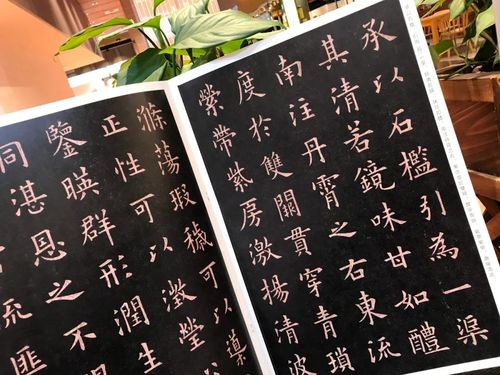 承以石檻引為一渠
其清若鏡味甘如醴
南注丹霄之右東流
度於雙闕貫穿青瑣
縈帶紫房激揚清波
滌蕩瑕穢可以導
正性可以澂瑩
鑒暎群形潤生
同湛恩之不
流匪